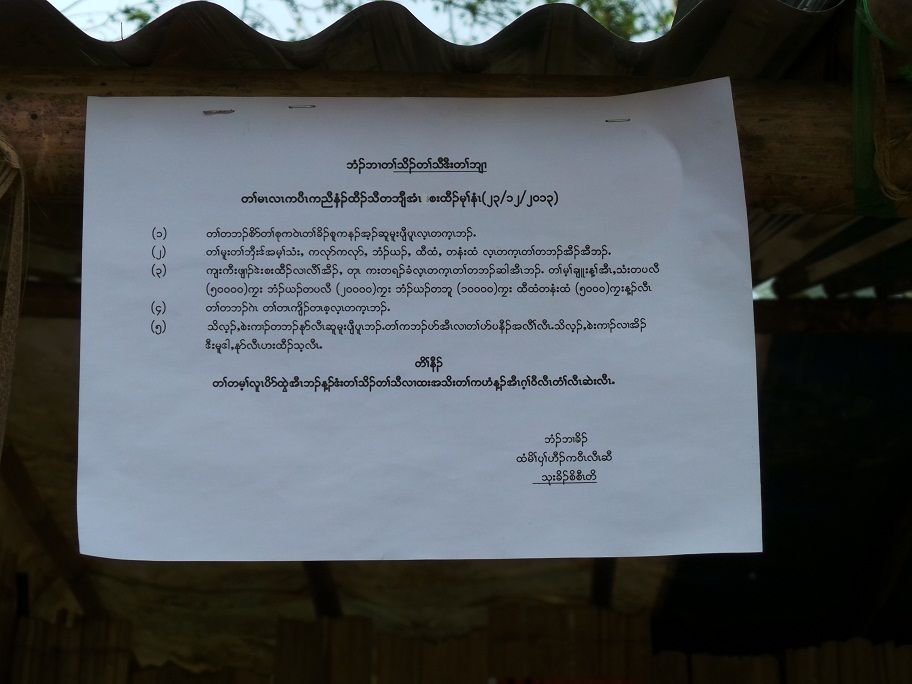 ဘံၣ်ဘၢတၢ်သိၣ်တၢ်သီဒီးတၢ်ဘျၢ
တၢ်မၤလၤကပီၤကညီနံၣ်ထီၣ်သီတဘျီအံၤ စးထီၣ်မုၢ်နံၤ(၂၃/၁၂/၂၀၁၃)
(၁) တၢ်တဘၣ်စိာ်တၢ်စုကဝဲၤတၢ်ခိၣ်စူကနၣ်အ့ၣ်ဆူမူးပျီပူၤလ့ၤတက့ၤဘၣ်.
(၂) တၢ်မူးတၢ်ဘှီးဒၢ်အမ့ၢ်သံး, ကလုာ်ကလုာ်, ဘံၣ်ယၣ်, ထီထံ, တနံးထံ လ့ၤတက့ၤတၢ်တဘၣ်အီၣ်အီဘၣ်.
(၃) ကျးကီးဖျၢၣ်ဒဲးစးထီၣ်လၢလီၢ်အီၣ်, တုၤ ကးတရၣ်ခံလ့ၤတက့ၤတၢ်တဘၣ်ဆါအီၤဘၣ်. တၢ်မ့ၢ်ချူးန့ၢ်အီၤ,သံးတပလီ
(၅၀၀၀၀)ကွး ဘံၣ်ယၣ်တပလီ (၂၀၀၀၀)ကွး ဘံၣ်ယၣ်တဘူ (၁၀၀၀၀)ကွး ထီထံတနံးထံ (၅၀၀၀)ကွးန့ၣ်လီၤ
(၄) တၢ်တဘၣ်ဂဲၤ တၢ်တၤကျိၣ်တၤစ့လ့ၤတက့ၤဘၣ်.
(၅) သိလ့ၣ်,စဲးကၢၣ်တဘၣ်နုာ်လီၤဆူမူးပျီပူၤဘၣ်.တၢ်ကဘၣ်ပာ်အီၤလၢတၢ်ပာ်ပနီၣ်အလီၢ်လီၤ.သိလ့ၣ်,စဲးကၢၣ်လၢအိၣ်
ဒီးမူဒါ,နုာ်လီၤဟးထီၣ်သ့လီၤ.
တိၢ်နီၣ်
တၢ်တမ့ၢ်လူၤပိာ်ထွဲအီၤဘၣ်န့ၣ်ဒံးတၢ်သိၣ်တၢ်သီလၢထးအသိးတၢ်ကဟံန့ၣ်အီၤဂ့ၢ်ဝီလီၤတံၢ်လီၤဆဲးလီၤ.
ဘံၣ်ဘၢခိၣ်
ထံမိၢ်ပှၢ်ဟီၣ်ကဝီၤလီၤဆီ
သုးခိၣ်စိစီၤတိ